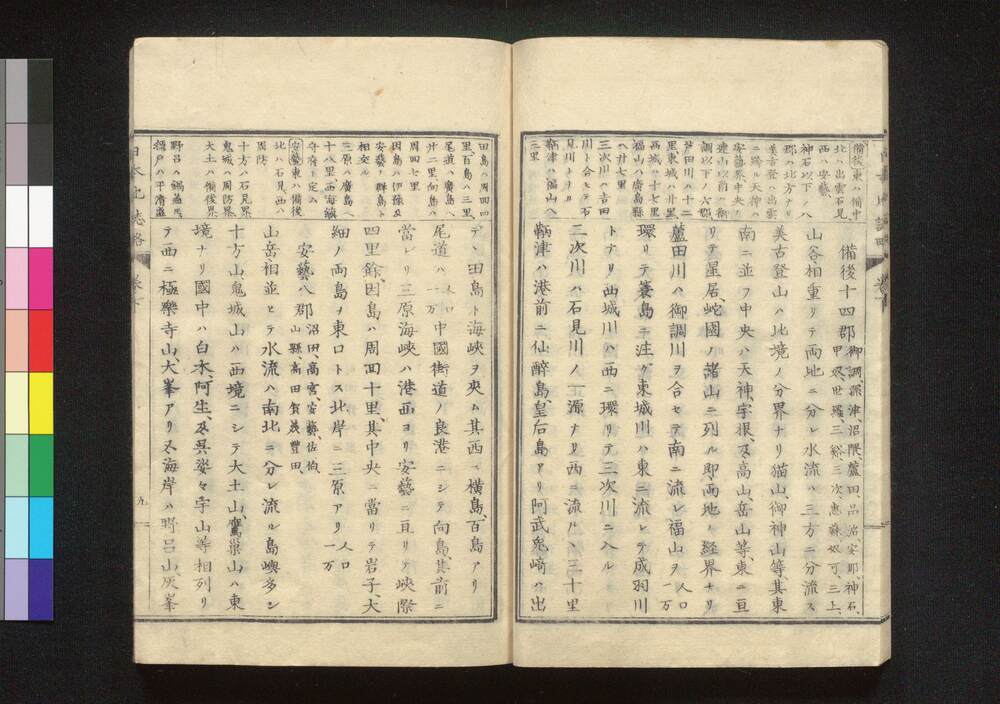 備後十四郡 御調、深津、沼隈、蘆田、品治、安那、神石、
甲奴、世羅、三谿、三次、惠蘇、奴可、三上、
山谷相重リテ兩地ニ分レ水流ハ三方ニ分流ス
美古登山ハ北境ノ分界ナリ猫山、御神山等、其東
南ニ並フ中央ハ天神、宇根、及高山、岳山等、東ニ亘
リテ星居、蛇國ノ諸山ニ列ル即兩地ノ經界ナリ
蘆田川ハ御調川ヲ合セテ南ニ流レ福山ヲ 人口一万
環リテ蓑島ニ注グ東城川ハ東ニ流レテ成羽川
トナリ西城川ハ西ニ環リテ三次川ニ入ル
三次川ハ石見川ノ一源ナリ西ニ流ルヽ三十里
鞆津ハ港前ニ仙醉島、皇后島アリ阿武兎崎ハ出
備後東ハ備中
北ハ出雲石見
西ハ安藝
神石以下ノ八
郡ハ北方ナリ
美古登ハ出雲
ニ跨ル天神ハ
安藝界中央ノ
連山以前ハ御
調以下ノ六郡
芦田川ハ十二
里東城川ハ廿里
西城ハ十七里
福山ハ廣島縣
ヘ廿七里
三次川ハ吉田
川ト合ヒテ石
見川トナリ
鞆津ハ福山ヘ
三里
デヽ田島ト海峽ヲ夾ム其西ニ横島、百島アリ
尾道ハ 人口一万 中國街道ノ良港ニシテ向島、其前ニ
當レリ三原海峽ハ港西ヨリ安藝ニ亘リテ峽際
四里餘、因島ハ周回十里、其中央ニ當リテ岩子、大
細ノ兩島ヲ東口トス北岸ニ三原アリ 人口一万
安藝八郡 沼田、高宮、安藝、佐伯、
山縣、高田、賀茂、豐田、
山岳、相並ヒテ水流ハ南北ニ分レ流ル島嶼多シ
十方山、鬼城山ハ西境ニシテ大土山、鷹巣山ハ東
境ナリ國中ハ白木、阿生、及呉娑々宇山等相列リ
テ西ニ極樂寺山、大峯アリ又海岸ハ野呂山灰峯
田島ハ周四
里、百島ハ三里、
尾道ハ廣島ヘ
廿二里向島ハ
周四七里
因島ハ伊豫及
安藝ノ群島ト
相交ル
三原ハ廣島ヘ
十八里、西海鎮
守府ト定ム
安藝東ハ備後
北ハ石見、西ハ
周防
十方ハ石見界
鬼城ハ周防界
大土ハ備後界
日本地誌略
卷下
九